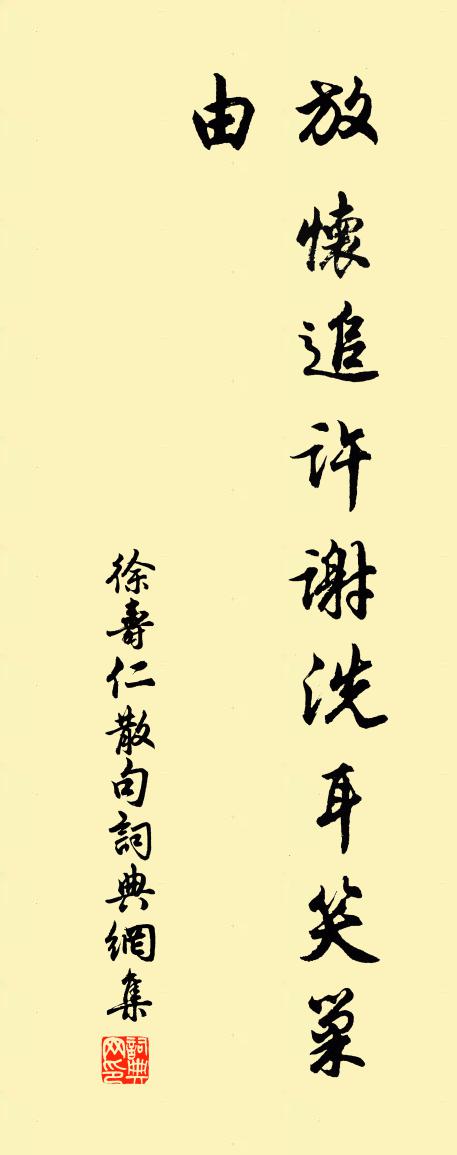 放懷追许谢洗耳笑巢
由
徐壽仁散句詞典網集
詞典网印